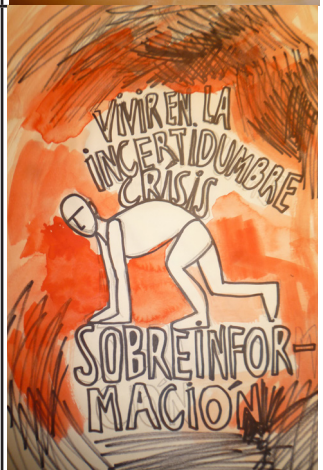 ViViR EN LA
iNCERTIDUMBRE
CRiSiS
SOBREiNFOR-
MACiÓN